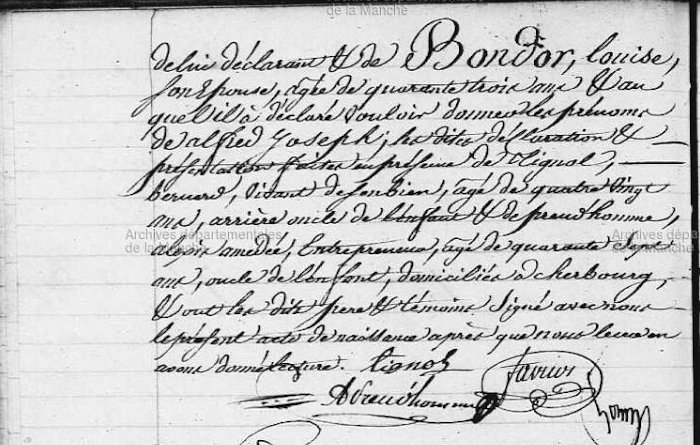 de la Manche
de lui déclarant & de Bondor, louise,
son Epouse, agée de quarante trois ans & au
quel il à déclaré vouloir donner les prénoms
de alfred Joseph; les dites déclaration &
présentation faites en présence de Tignol,
bernard, vivant de son bien, agé de quatre vingt
ans, arrière oncle de l'enfant & de preudhomme,
Archives départementales
de la Manche
Archives départementales
de la Manche
aloïs amédée, Entrepreneur, agé de quarante
ans, oncle de l'enfant, domiciliés à cherbourg,
& ont les dits pere & témoins Signé avec nous
le présent acte de naissance après que nous leur en
avons donné lecture. Tignol
APreudhomme